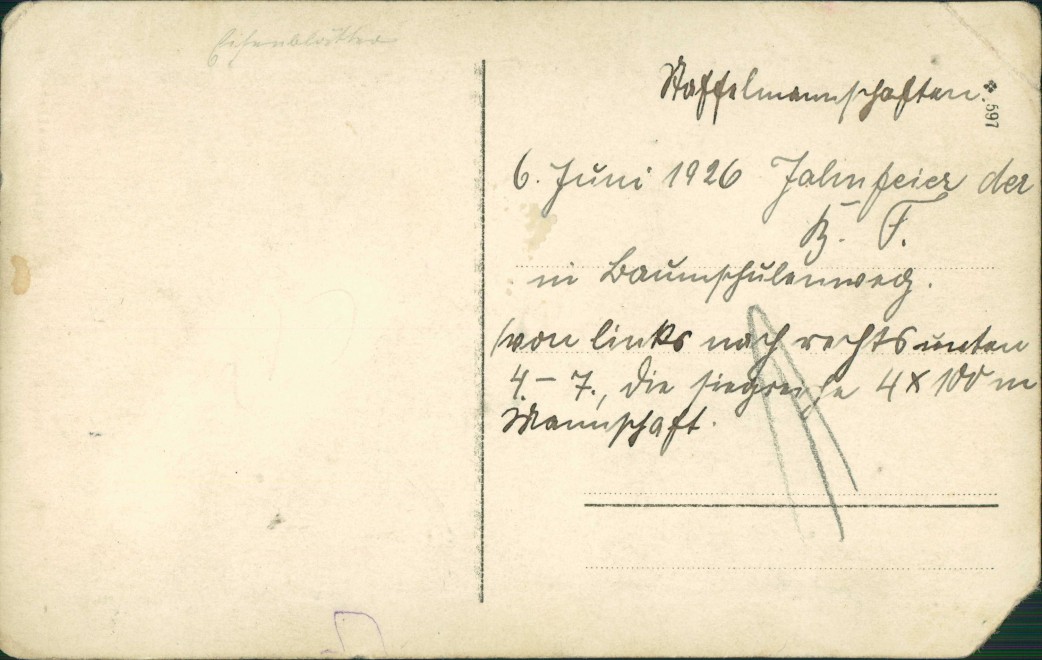 Eisenblätter
Staffelmannschaften.
597
6. Juni 1926 Jahnfeier der
B. T.
in Baumschulenweg.
(von links nach rechts unten
4.-7., die siegreiche 4x100 m
Mannschaft.